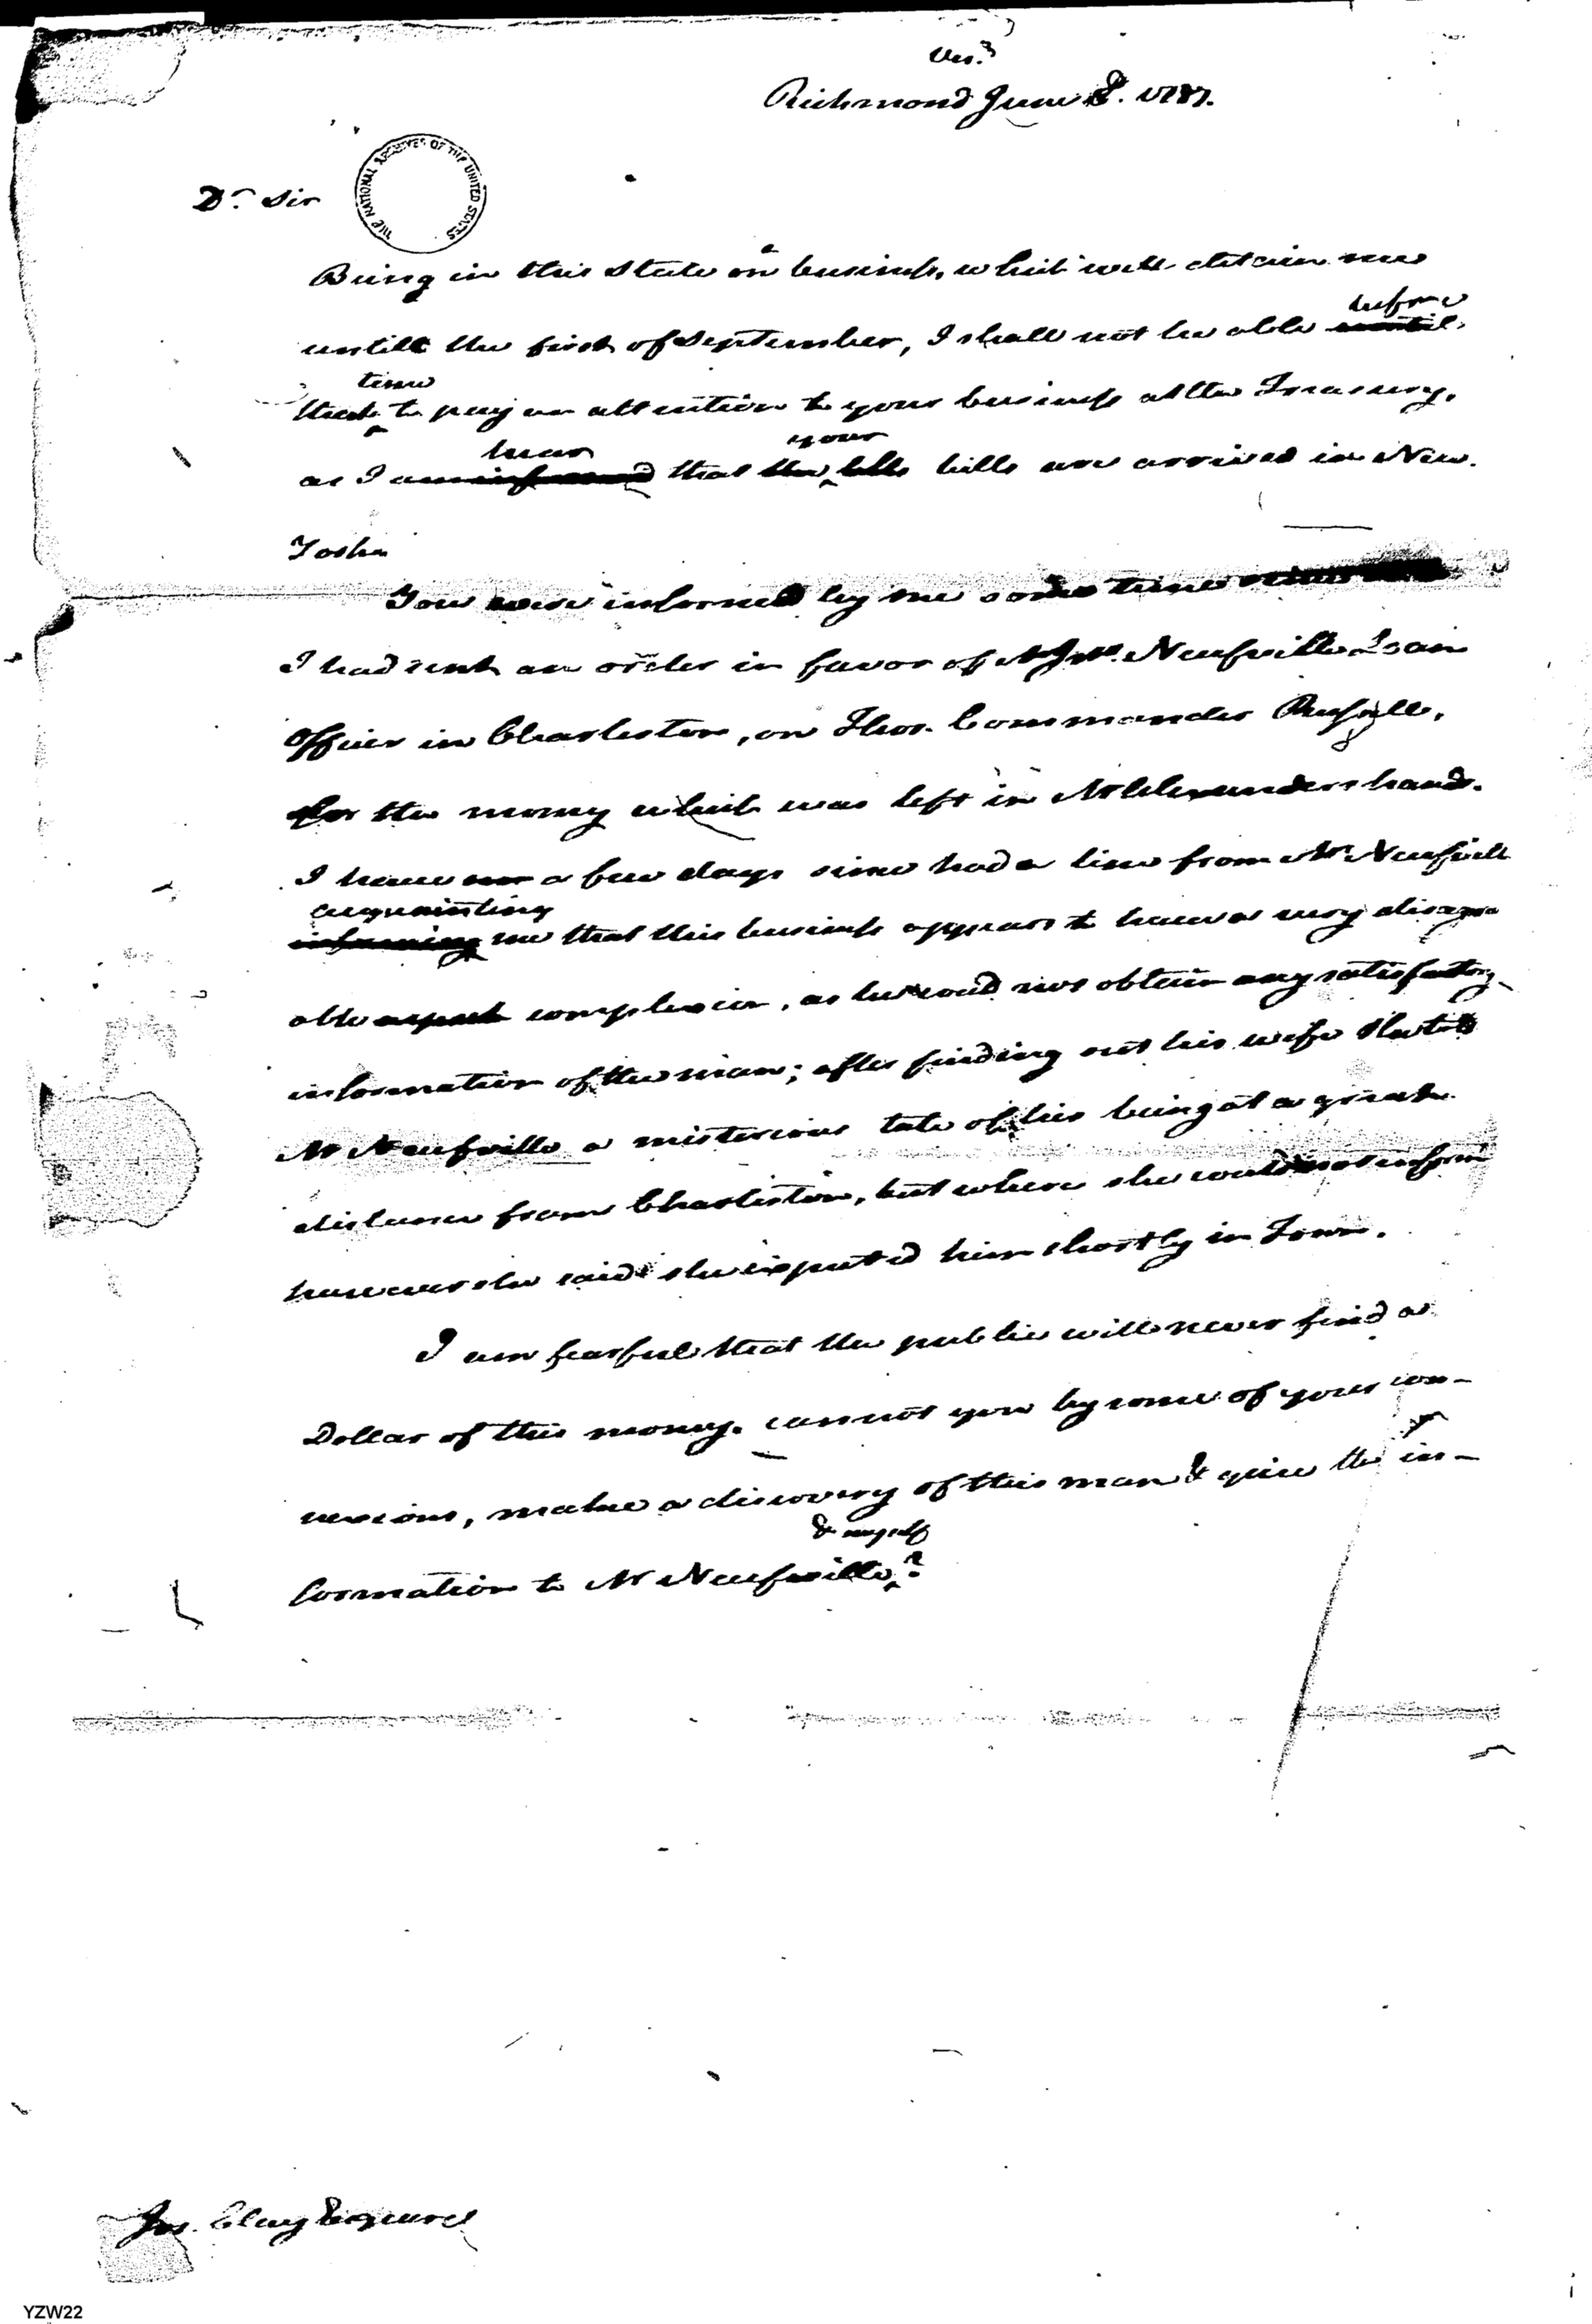 Richmond June 8. 1787.
THE NATIONAL ARCHIVES OF THE UNITED STATES
Dr. Sir
Being in this State on business, which will detain me
before
untill the first of September, I shall not be able until
time
that to pay an attention to your business at the Treasury,
hear your
as I am informed that the bills bills are arrived in New
York
You were informed by me some time since
I had sent an order in favor of Neufville Loan
officer in Charleston, on Thos. Commander Russell,
for the money which was left in Mr Alexanders hands.
I have a few days since had a line from Mr Neufvill
acquainting
informing me that this business appears to have a very disagre
able aspect complexion, as he could not obtain any satisfactory
information of the man; after finding out his wife that
Mr Neufville a misterious tale of his being at a great
distance from Charleston, but where she would not inform
however she said she expected him shortly in Town.
I am fearful that the public will never find a
Dollar of this money. cannot you by some of your con-
nexions, make a discovery of this man & give the in-
& myself
formation to Mr Neufville?
Jos. Clay Esquire
YZW22